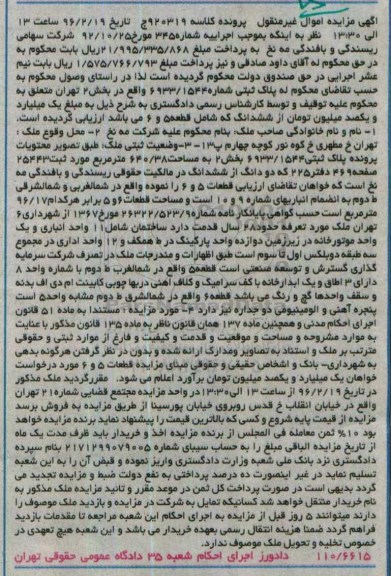 آگهی مزایده اموال غیرمنقول پرونده کلاسه ۹۲۰۳۱۹ج تاریخ ۹۶/۲/۱۹ ساعت ۱۳
الی ۱۳:۳۰ نظر به اینکه بموجب اجراییه شماره ۳۴۵ مورخ ۹۲/۱۰/۲۵ شرکت سهامی
ریسندگی و بافندگی مه نخ به پرداخت مبلغ ۲۱/۹۹۵/۳۳۵/۸۶۸ ریال بابت محکوم به
در حق محکوم له آقای داود صادقی و نیز پرداخت مبلغ ۱/۵۷۵/۷۶۶/۷۹۳ ریال بابت نیم
عشر اجرایی در حق صندوق دولت محکوم گردیده است لذا در راستای وصول محکوم به
حسب تقاضای محکوم له پلاک ثبتی شماره ۶۹۳۳/۱۵۴۴ واقع در بخش ۲ تهران متعلق به
محکوم علیه توقیف و توسط کارشناس رسمی دادگستری به شرح ذیل به مبلغ یک میلیارد
و یکصد میلیون تومان از ششدانگ که شامل قطعه ۵ و ۶ می باشد ارزیابی گردیده است.
۱- نام و نام خانوادگی صاحب ملک: بنام محکوم علیه شرکت مه نخ ۲- محل وقوع ملک :
تهران خ مطهری خ کوه نور کوچه چهارم پ۱۳- ۳- وضعیت ثبتی ملک: طبق تصویر محتویات
پرونده پلاک ثبتی ۶۹۳۳/۱۵۴۴ بخش ۲ به مساحت ۶۴۰/۳۸ مترمربع مورد ثبت ۲۵۴۴۳
صفحه ۴۶۹ دفتر ۲۲۵ که دو دانگ از ششدانگ در مالکیت حقوقی ریسندگی و بافندگی مه
نخ است که خواهان تقاضای ارزیابی قطعات ۵ و ۶ را نموده واقع در شمالغربی و شمالشرقی
ط دوم به انضمام انباریهای شماره ۹ و ۱۰ است و مساحت قطعات ۶ و ۵ برابر هرکدام ۹۶/۱۷
مترمربع است حسب گواهی پایانکار نامه شماره ۲۶۳۲۲/۵۲۳/۹ مورخ ۱۳۶۷ از شهرداری ۶
تهران ملک مورد تعرفه حدود ۲۸ سال قدمت دارد ساختمان شامل ۱۱ واحد انباری و یک
واحد موتورخانه در زیرزمین دوازده واحد پارکینگ در ط همکف و ۱۲ واحد اداری در مجموع
سه طبقه دوبلکس اول تا سوم است طبق اظهارات و مندرجات ملک در تصرف شرکت سرمایه
گذاری گسترش و توسعه صنعتی است قطعه ۵ واقع در شمالغرب ط دوم با شماره واحد ۸
دارای ۳ اطاق و یک ابدارخانه با کف سرامیک و کلاف آهنی دربها چوبی کابینت ام دی اف بدنه
و سقف واحدها گچ و رنگ می باشد قطعه ۶ واقع در شمالشرق ط دوم مشابه واحد ۵ است
پنجره آهنی و الومینیومی دو جداره نیز دارد ۴- مورد مزایده : مستندا به ماده ۵۱ قانون
اجرای احکام مدنی و همچنین ماده ۱۳۷ همان قانون ناظر به ماده ۱۳۵ قانون مذکور با عنایت
به موارد مشروحه و مساحت و موقعیت و قدمت و کیفیت و فارغ از موارد ثبتی و حقوقی
مترتب بر ملک و استناد به تصاویر ومدارک ارائه شده و بدون در نظر گرفتن هرگونه بدهی
به شهرداری- بانک و اشخاص حقیقی و حقوقی مبنای مزایده قطعات ۵ و ۶ مورد درخواست
خواهان یک میلیارد و یکصد میلیون تومان برآورد اعلام می شود. مقررگردید ملک مذکور
در تاریخ ۹۶/۲/۱۹ از ساعت ۱۳ الی ۱۳:۳۰ در واحد مزایده مجتمع قضایی شماره ۲۱ تهران
واقع در خیابان انقلاب خ قدس روبروی خیابان پورسینا از طریق مزایده به فروش برسد
مزایده از قیمت پایه شروع و کسی که بالاترین قیمت را پیشنهاد نماید برنده مزایده خواهد
بود ۱۰٪ ثمن معامله فی المجلس از برنده مزایده اخذ و خریدار باید ظرف مدت یک ماه
از تاریخ مزایده الباقی مبلغ را به حساب سیبای شماره ۲۱۷۱۲۹۹۰۷۹۰۰۵ بنام سپرده
دادگستری نزد بانک ملی شعبه وزارت دادگستری واریز نموده و قبض آن را به این شعبه
تسلیم نماید در غیر اینصورت ده درصد پرداختی به نفع دولت ضبط و مزایده تجدید می
گردد بدیهی است در صورت پرداخت کل ثمن در موعد مقرر و تائید مزایده ملک مذکور به
نام خریدار منتقل خواهد شد کسانیکه تمایل به شرکت در مزایده و بازدید ملک موصوف را
دارند میتوانند ۵ روز قبل از مزایده به اجرای احکام این شعبه مراجعه تا مقدمات بازدید
فراهم گردد ضمنا هزینه انتقال رسمی بعهده خریدار می باشد و این شعبه هیچ تعهدی در
خصوص تخلیه و تحویل ملک موصوف ندارد.
۱۱۰/۶۶۱۵ دادورز اجرای احکام شعبه ۳۵ دادگاه عمومی حقوقی تهران